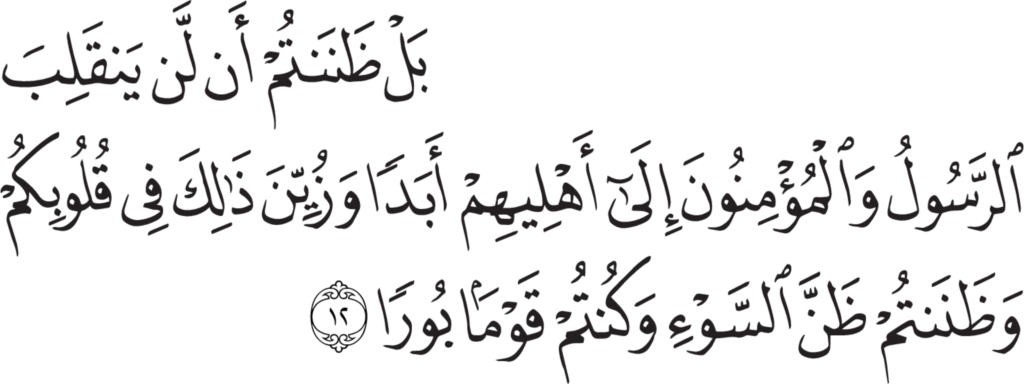 بَلْ ظَنَنتُمْ أَن لَّن يَنقَلِبَ
ٱلرَّسُولُ وَٱلْمُؤْمِنُونَ إِلَىٰٓ أَهْلِيهِمْ أَبَدًا وَزُيِّنَ ذَٰلِكَ فِى قُلُوبِكُمْ
وَظَنَنتُمْ ظَنَّ ٱلسَّوْءِ وَكُنتُمْ قَوْمًۢا بُورًا ١٢